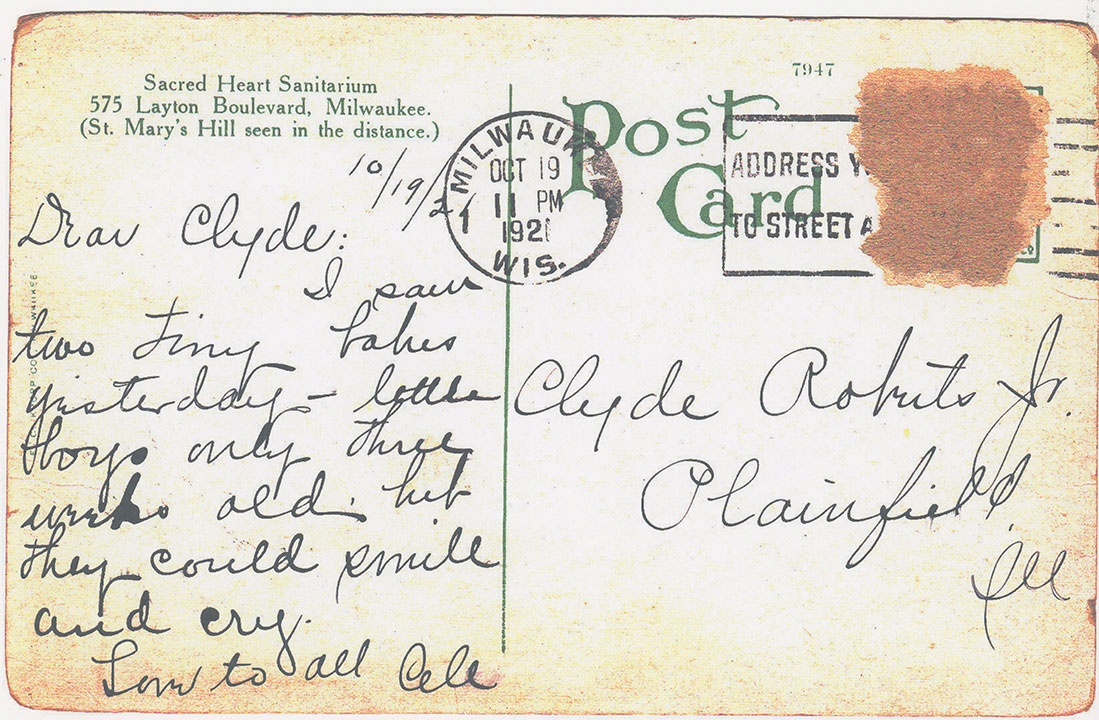 Sacred Heart Sanitarium
575 Layton Boulevard, Milwaukee.
(St. Mary's Hill seen in the distance.)
7947
Post
Card
MILWAUK
OCT 19
11 PM
1921
WIS.
1
ADDRESS Y
TO STREET A
10/19/21
Dear Clyde:
I saw
two tiny babes
yesterday – little
boys only three
weeks old. but
they could smile
and cry.
Love to all Cele
Clyde Roberts Jr.
Plainfield
Ill